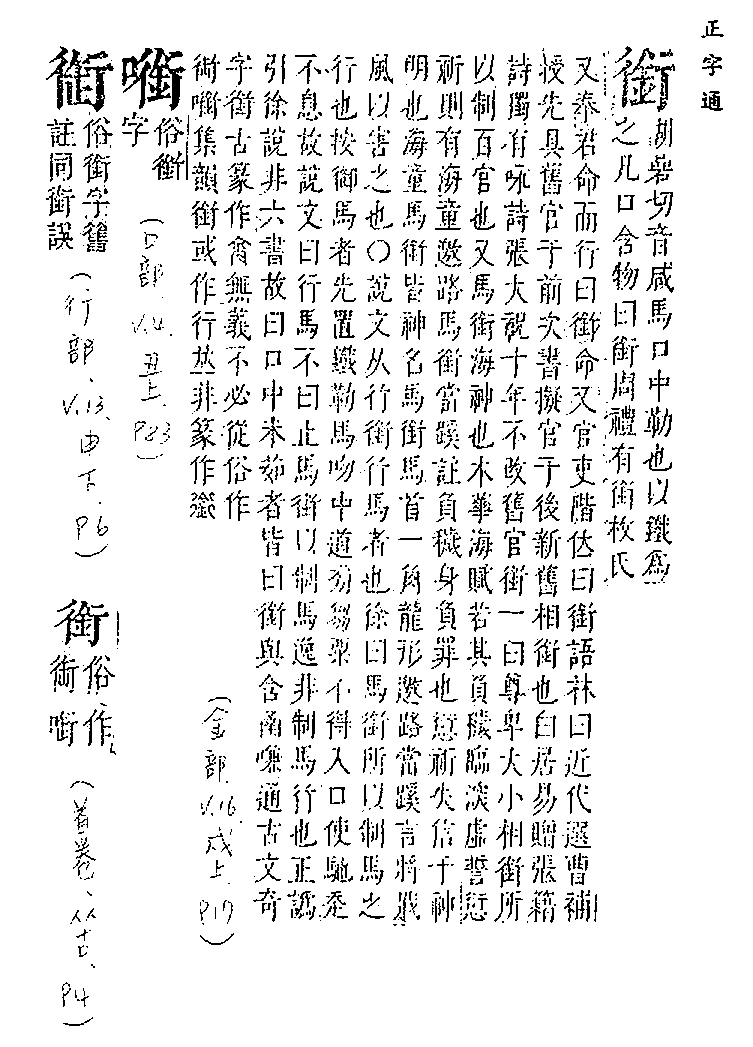 正字通
銜
胡喦切音咸馬口中勒也以鐵為
之凡口含物曰銜周禮有銜枚氏
又奉君命而行曰銜命又官吏階位曰銜語林曰近代選曹補
授先具舊官于前次書擬官于後新舊相銜也白居易贈張籍
詩獨有咏詩張太祝十年不改舊官銜一曰尊卑大小相銜所
以制百官也又馬銜海神也木華海賦若其負穢臨深虛誓愆
祈則有海童邀路馬銜當蹊註負穢身負罪也愆祈失信于神
明也海童馬銜皆神名馬銜馬首一角龍形邀路當蹊言將戕
風以害之也〇說文从行銜行馬者也徐曰馬銜所以制馬之
行也按御馬者先置鐵勒馬吻中道芻粟不得入口使馳
不息故說文曰行馬不曰止馬銜以制馬逸非制馬行也正譌
引徐說非六書故曰口中未茹者皆曰銜與含嗛通古文奇
字銜古篆作禽無義不必從俗作
衘㗸集韻銜或作行𠀤非篆作
(金部、V.16、戌上、P17)
㗸
俗銜
字
(口部、V.4、丑上、P83)
衘
俗銜字舊
註同銜誤
(行部、V.13、申下、P6)
銜
俗作
衘㗸
(首卷、从古、P4)